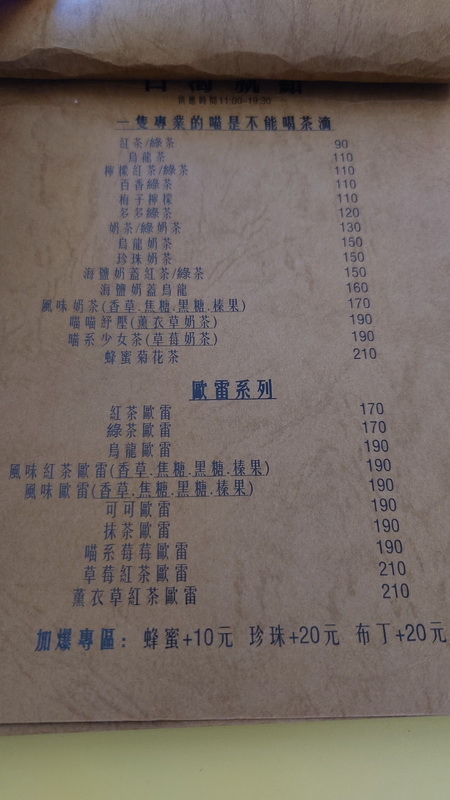 供應時間11:00-19:30
一隻專業的喵是不能喝茶滴
紅茶/綠茶 90
烏龍茶 110
檸檬紅茶/綠茶 110
百香綠茶 110
梅子檸檬 110
多多綠茶 120
奶茶/綠奶茶 130
烏龍奶茶 150
珍珠奶茶 150
海鹽奶蓋紅茶/綠茶 150
海鹽奶蓋烏龍 160
風味奶茶(香草.焦糖.黑糖.榛果) 170
喵喵紓壓(薰衣草奶茶) 190
喵系少女茶(草莓奶茶) 190
蜂蜜菊花茶 210
歐雷系列
紅茶歐雷 170
綠茶歐雷 170
烏龍歐雷 190
風味紅茶歐雷(香草.焦糖.黑糖.榛果) 190
風味歐雷(香草.焦糖.黑糖.榛果) 190
可可歐雷 190
抹茶歐雷 190
喵系莓莓歐雷 190
草莓紅茶歐雷 210
薰衣草紅茶歐雷 210
加爆專區: 蜂蜜+10元 珍珠+20元 布丁+20元